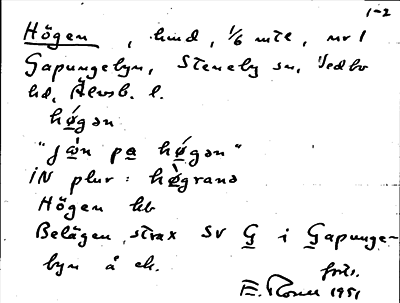 1-2
Högen, hmd, 1/6 mtl, nr 1
Gapungebyn, Steneby sn, Vedbo
hd, Älvsb. l.
hǿgən
"jœ̀n pa hǿgən"
IN plur: hø̀grana
Högen hb
Belägen strax SV G i Gapunge-
byn å ek.
forts.
1951